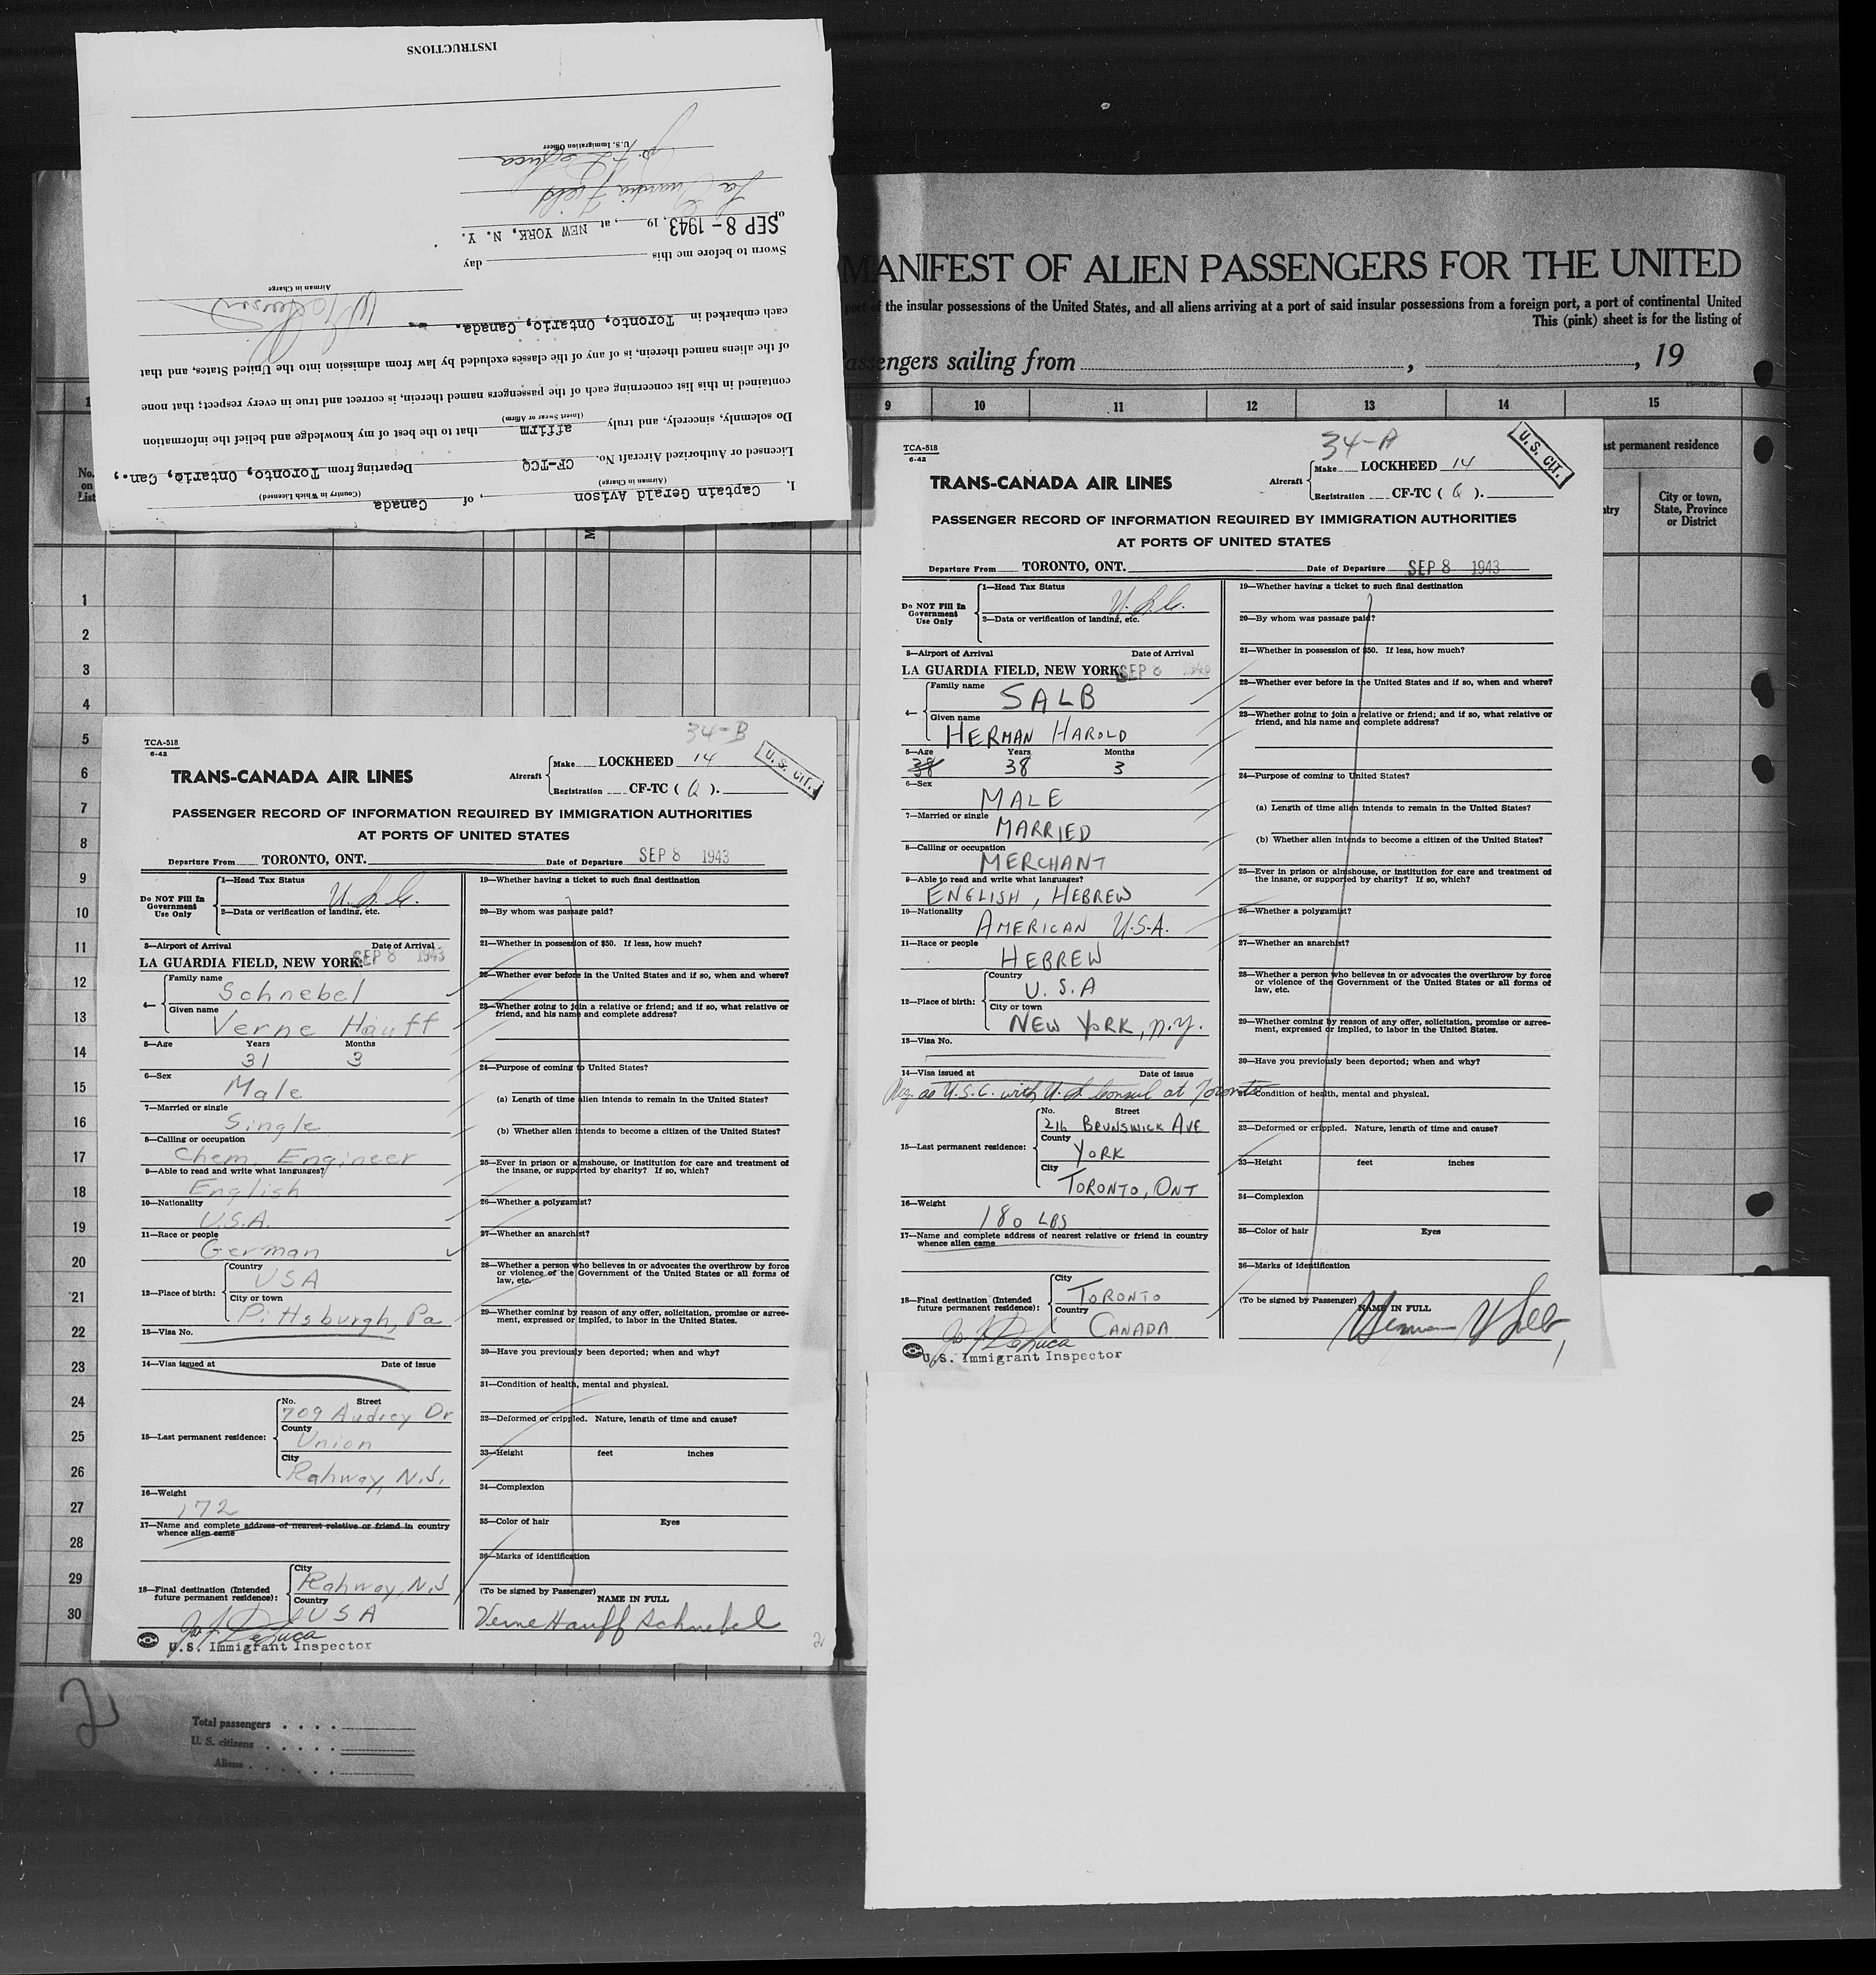 INSTRUCTIONS
I, Captain Gerald Avison, of Canada
(Airman in Charge) (Country in Which Licensed)
Licensed or Authorized Aircraft No. CF-TCQ Departing from Toronto, Ontario, Can.,
Do solemnly, sincerely, and truly affirm that to the best of my knowledge and belief the information
(Insert Swear or Affirm)
contained in this list concerning each of the passengers named therein, is correct and true in every respect; that none
of the aliens named therein, is of any of the classes excluded by law from admission into the United States, and that
each embarked in Toronto, Ontario, Canada.
Airman in Charge
Sworn to before me this day
of SEP 8 - 1943, 19, at NEW YORK, N. Y.
La Guardia Field
U.S. Immigration Officer
MANIFEST OF ALIEN PASSENGERS FOR THE UNITED
port of the insular possessions of the United States, and all aliens arriving at a port of said insular possessions from a foreign port, a port of continental United
This (pink) sheet is for the listing of
Passengers sailing from , , 19
9 10 11 12 13 14 15
No.
on
List
permanent residence
City or town,
State, Province
or District
1
2
3
4
5
6
7
8
9
10
11
12
13
14
15
16
17
18
19
20
21
22
23
24
25
26
27
28
29
30
34-B
TCA-518
6-42
U. S. CIT.
TRANS-CANADA AIR LINES
Aircraft
Make LOCKHEED 14
Registration CF-TC ( Q ).
PASSENGER RECORD OF INFORMATION REQUIRED BY IMMIGRATION AUTHORITIES
AT PORTS OF UNITED STATES
Departure From TORONTO, ONT. Date of Departure SEP 8 1943
Do NOT Fill In
Government
Use Only
1—Head Tax Status
U.S.C.
2—Data or verification of landing, etc.
3—Airport of Arrival Date of Arrival
LA GUARDIA FIELD, NEW YORK. SEP 8 1943
4—
Family name
Schnebel
Given name
Verne Hauff
5—Age Years Months
31 3
6—Sex
Male
7—Married or single
Single
8—Calling or occupation
Chem. Engineer
9—Able to read and write what languages?
English
10—Nationality
U.S.A.
11—Race or people
German
12—Place of birth:
Country
USA
City or town
Pittsburgh, Pa
13—Visa No.
14—Visa issued at Date of issue
15—Last permanent residence:
No. Street
709 Audrey Dr
County
Union
City
Rahway, N.J.
16—Weight
172
17—Name and complete address of nearest relative or friend in country
whence alien came
18—Final destination (Intended
future permanent residence):
City
Rahway, N.J
Country
USA
U.S. Immigrant Inspector
19—Whether having a ticket to such final destination
20—By whom was passage paid?
21—Whether in possession of $50. If less, how much?
22—Whether ever before in the United States and if so, when and where?
23—Whether going to join a relative or friend; and if so, what relative or
friend, and his name and complete address?
24—Purpose of coming to United States?
(a) Length of time alien intends to remain in the United States?
(b) Whether alien intends to become a citizen of the United States?
25—Ever in prison or almshouse, or institution for care and treatment of
the insane, or supported by charity? If so, which?
26—Whether a polygamist?
27—Whether an anarchist?
28—Whether a person who believes in or advocates the overthrow by force
or violence of the Government of the United States or all forms of
law, etc.
29—Whether coming by reason of any offer, solicitation, promise or agree-
ment, expressed or implied, to labor in the United States.
30—Have you previously been deported; when and why?
31—Condition of health, mental and physical.
32—Deformed or crippled. Nature, length of time and cause?
33—Height feet inches
34—Complexion
35—Color of hair Eyes
36—Marks of identification
(To be signed by Passenger)
NAME IN FULL
Verne Hauff Schnebel
2
34-A
TCA-518
6-42
U. S. CIT.
TRANS-CANADA AIR LINES
Aircraft
Make LOCKHEED 14
Registration CF-TC ( Q ).
PASSENGER RECORD OF INFORMATION REQUIRED BY IMMIGRATION AUTHORITIES
AT PORTS OF UNITED STATES
Departure From TORONTO, ONT. Date of Departure SEP 8 1943
Do NOT Fill In
Government
Use Only
1—Head Tax Status
U.S.C.
2—Data or verification of landing, etc.
3—Airport of Arrival Date of Arrival
LA GUARDIA FIELD, NEW YORK SEP 8 1943
4—
Family name
SALB
Given name
HERMAN HAROLD
5—Age Years Months
38 38 3
6—Sex
MALE
7—Married or single
MARRIED
8—Calling or occupation
MERCHANT
9—Able to read and write what languages?
ENGLISH, HEBREW
10—Nationality
AMERICAN U.S.A.
11—Race or people
HEBREW
12—Place of birth:
Country
U.S.A
City or town
NEW YORK, N.Y.
13—Visa No.
14—Visa issued at Date of issue
Reg. as U.S.C. with U.S. Consul at Toronto
15—Last permanent residence:
No. Street
216 BRUNSWICK AVE
County
YORK
City
TORONTO, ONT
16—Weight
180 LBS
17—Name and complete address of nearest relative or friend in country
whence alien came
18—Final destination (Intended
future permanent residence):
City
TORONTO
Country
CANADA
U.S. Immigrant Inspector
19—Whether having a ticket to such final destination
20—By whom was passage paid?
21—Whether in possession of $50. If less, how much?
22—Whether ever before in the United States and if so, when and where?
23—Whether going to join a relative or friend; and if so, what relative or
friend, and his name and complete address?
24—Purpose of coming to United States?
(a) Length of time alien intends to remain in the United States?
(b) Whether alien intends to become a citizen of the United States?
25—Ever in prison or almshouse, or institution for care and treatment of
the insane, or supported by charity? If so, which?
26—Whether a polygamist?
27—Whether an anarchist?
28—Whether a person who believes in or advocates the overthrow by force
or violence of the Government of the United States or all forms of
law, etc.
29—Whether coming by reason of any offer, solicitation, promise or agree-
ment, expressed or implied, to labor in the United States.
30—Have you previously been deported; when and why?
31—Condition of health, mental and physical.
32—Deformed or crippled. Nature, length of time and cause?
33—Height feet inches
34—Complexion
35—Color of hair Eyes
36—Marks of identification
(To be signed by Passenger) NAME IN FULL
2
Total passengers
U. S. citizens
Aliens